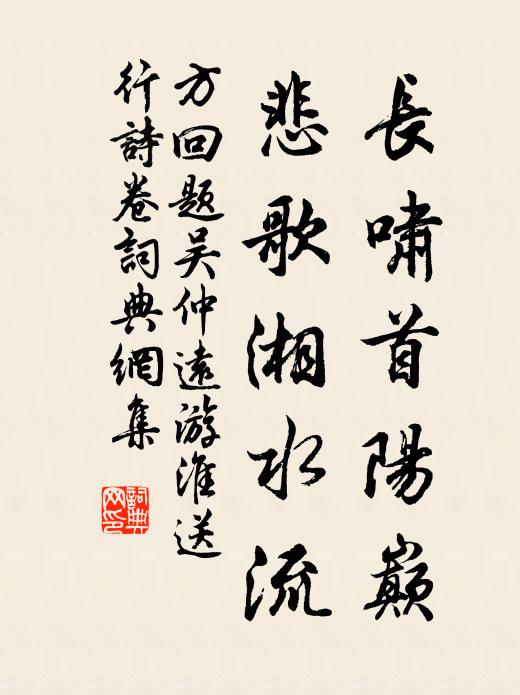 長嘯首陽巔
悲歌湘水流
方回題吴仲遠游淮送
行詩卷詞典網集
詞典
网印